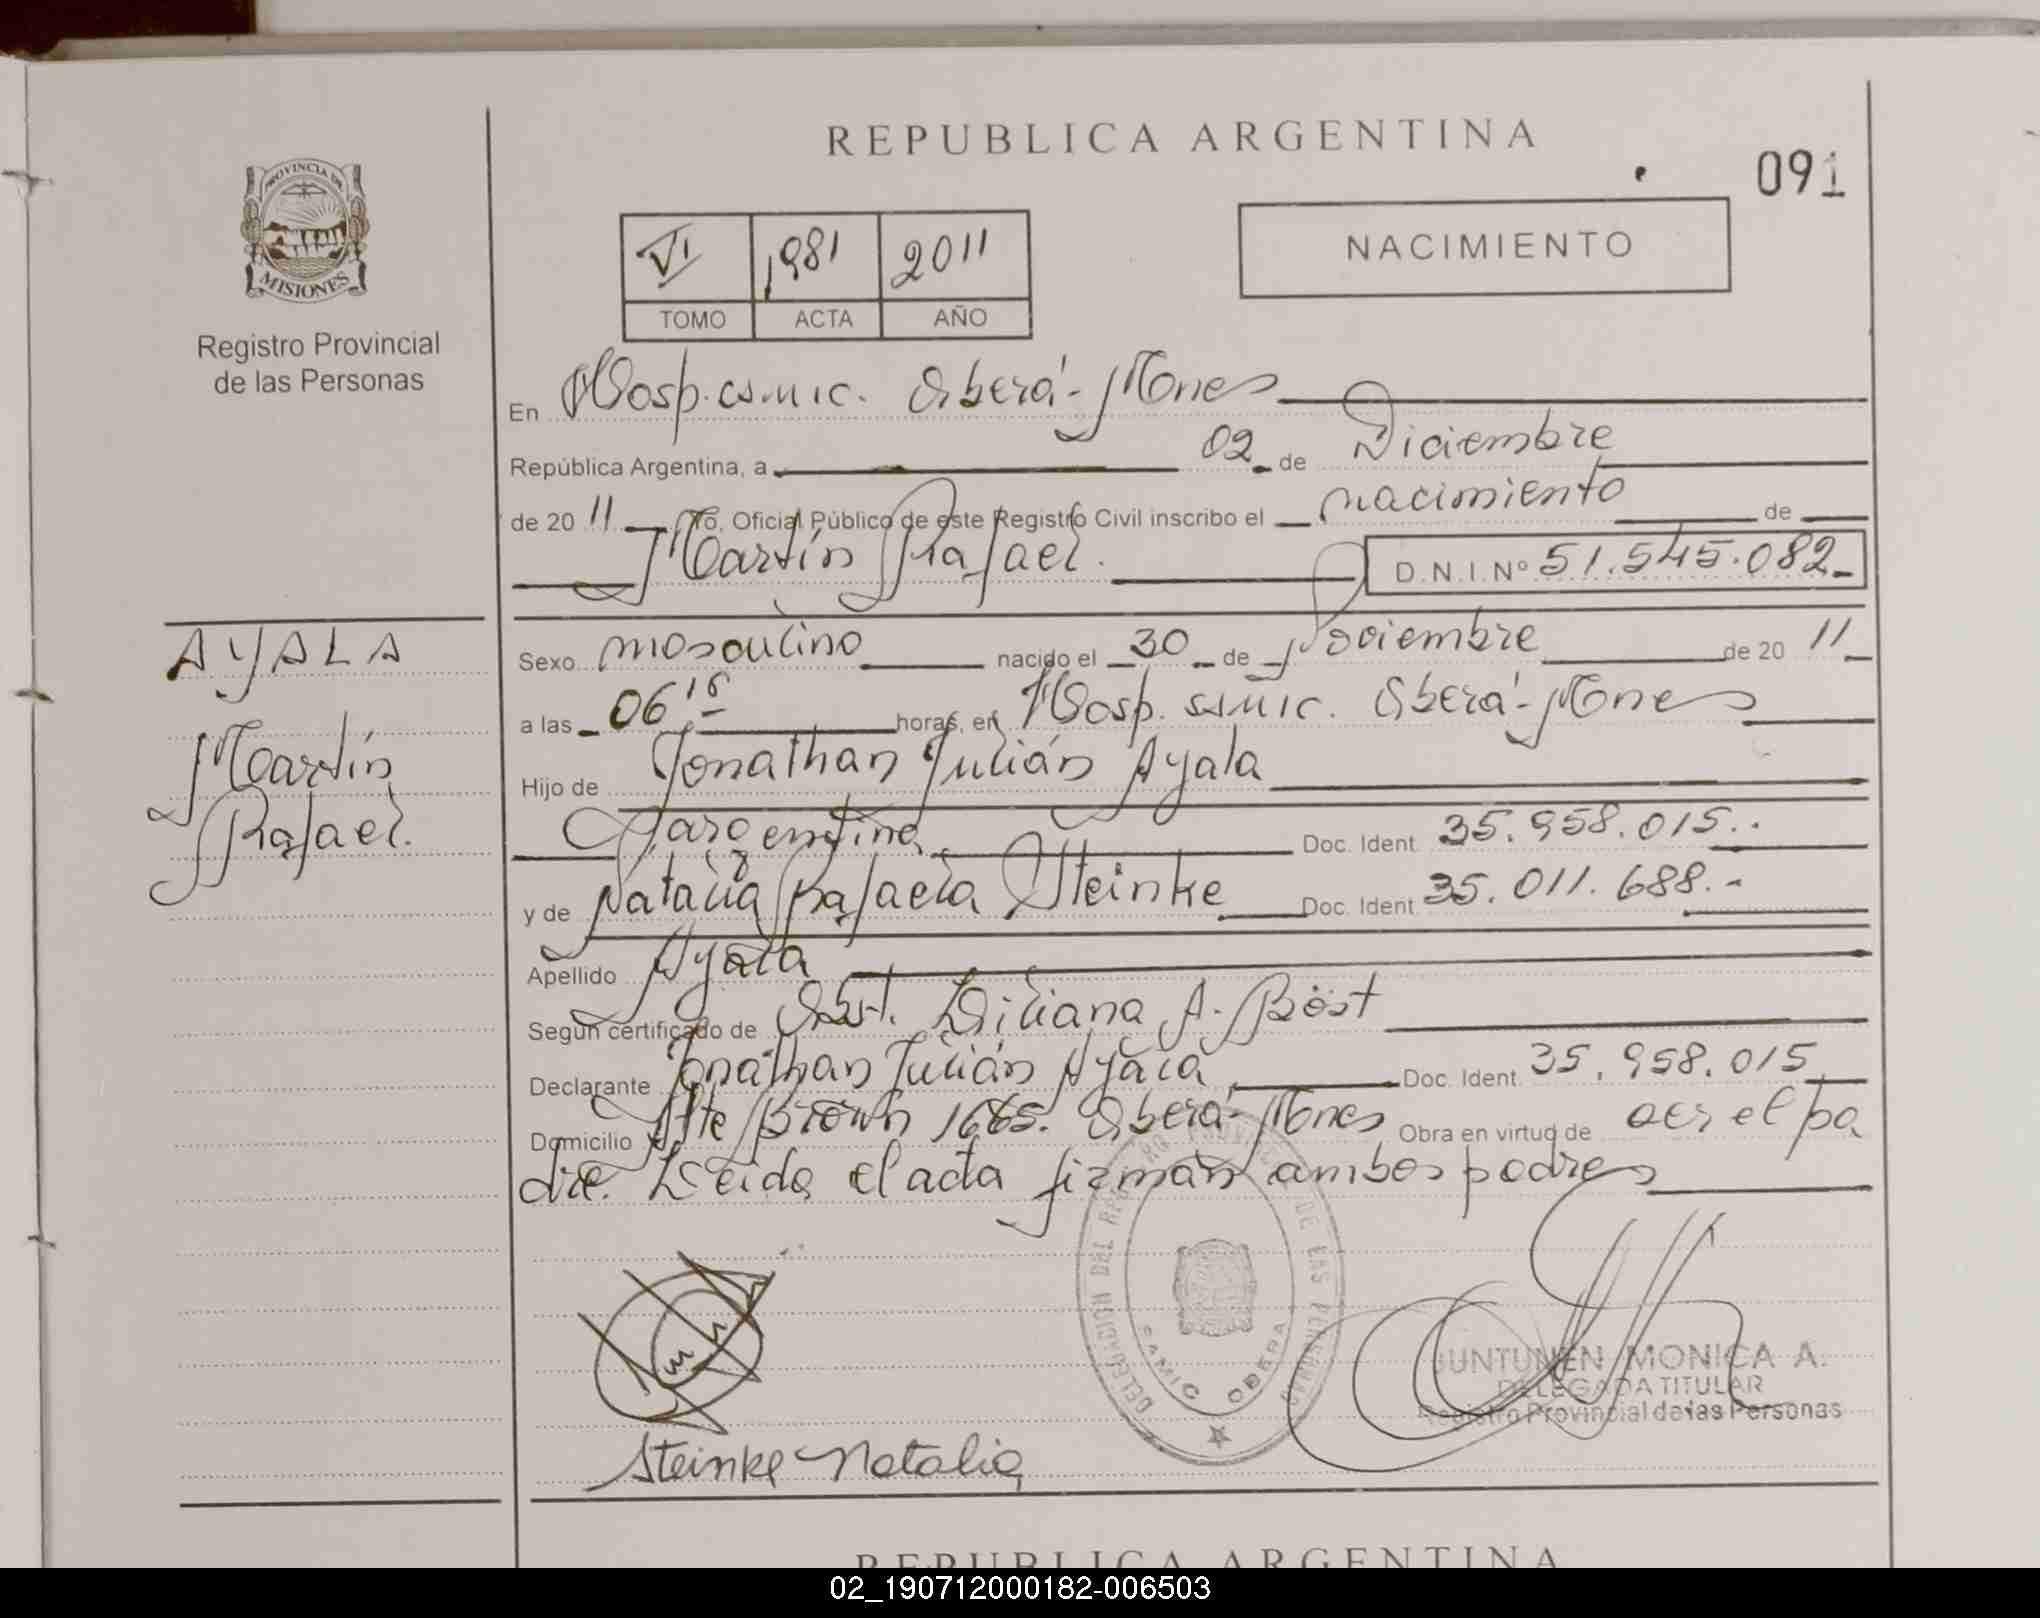 REPUBLICA ARGENTINA
091
PROVINCIA DE
MISIONES
Registro Provincial
de las Personas
VI 1981 2011
TOMO ACTA AÑO
NACIMIENTO
En Hosp. Oberá-Mnes
República Argentina, a 02 de Diciembre
de 20 11 Yo, Oficial Público de este Registro Civil inscribo el nacimiento de
Martín Rafael. D.N.I.Nº 51.545.082
AYALA
Martín
Rafael.
Sexo masculino nacido el 30 de Noviembre de 20 11
a las 06 horas, en Hosp. Oberá-Mnes
Hijo de Jonathan Julián Ayala
Argentina Doc. Ident. 35.958.015.
y de Natalia Rafaela Steinke Doc. Ident. 35.011.688.-
Apellido Ayala
Según certificado de Obst. Liliana A. Böst
Declarante Jonathan Julián Ayala Doc. Ident. 35.958.015
Domicilio Alte Brown 1665. Oberá-Mnes Obra en virtud de ser el pa
dre. Leida el acta firman ambos padres
DELEGACION DEL REG. PROVINCIAL DE LAS PERSONAS
SAMIC OBERA
JUNTUNEN MONICA A.
DELEGADA TITULAR
Registro Provincial de las Personas
Steinke Natalia
REPUBLICA ARGENTINA
02_190712000182-006503